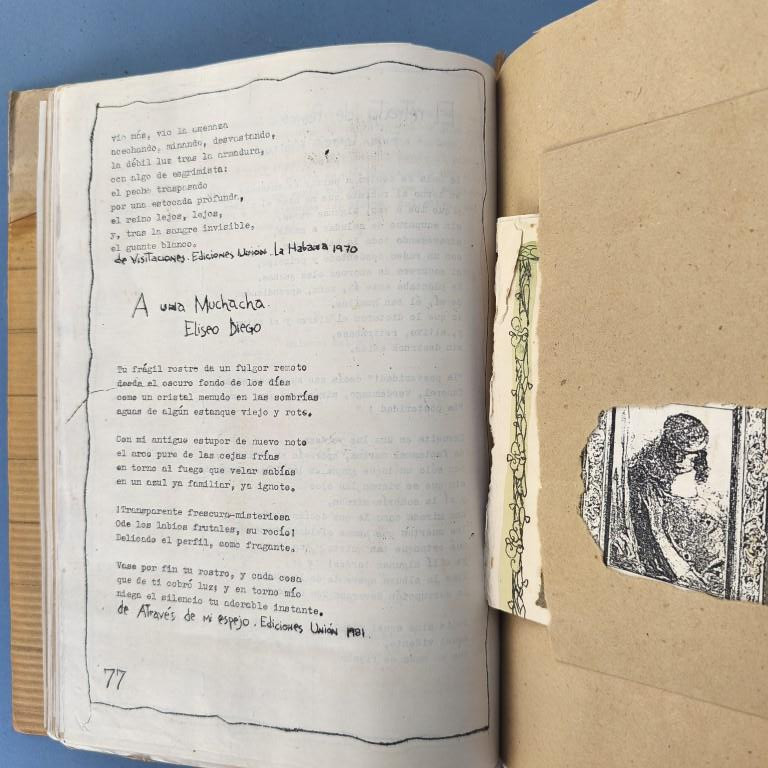 vio más, vio la amenaza
acechando, minando, devastando,
la débil luz tras la armadura,
con algo de esgrimista:
el pecho traspasado
por una estocada profunda,
el reino lejos, lejos,
y, tras la sangre invisible,
el guante blanco.
de Visitaciones. Ediciones Unión. La Habana 1970
A una Muchacha.
Eliseo Diego
Tu frágil rostro da un fulgor remoto
desde el oscuro fondo de los días
como un cristal menudo en las sombrías
aguas de algún estanque viejo y roto.
Con mi antiguo estupor de nuevo noto
el arco puro de las cejas frías
en torno al fuego que velar sabías
en un azul ya familiar, ya ignoto.
¡Transparente frescura-misteriosa
Ode los labios frutales, su rocío!
Delicado el perfil, como fragante.
Vase por fin tu rostro, y cada cosa
que de ti cobró luz; y en torno mío
niega el silencio tu adorable instante.
de Através de mi espejo. Ediciones Unión 1981.
77